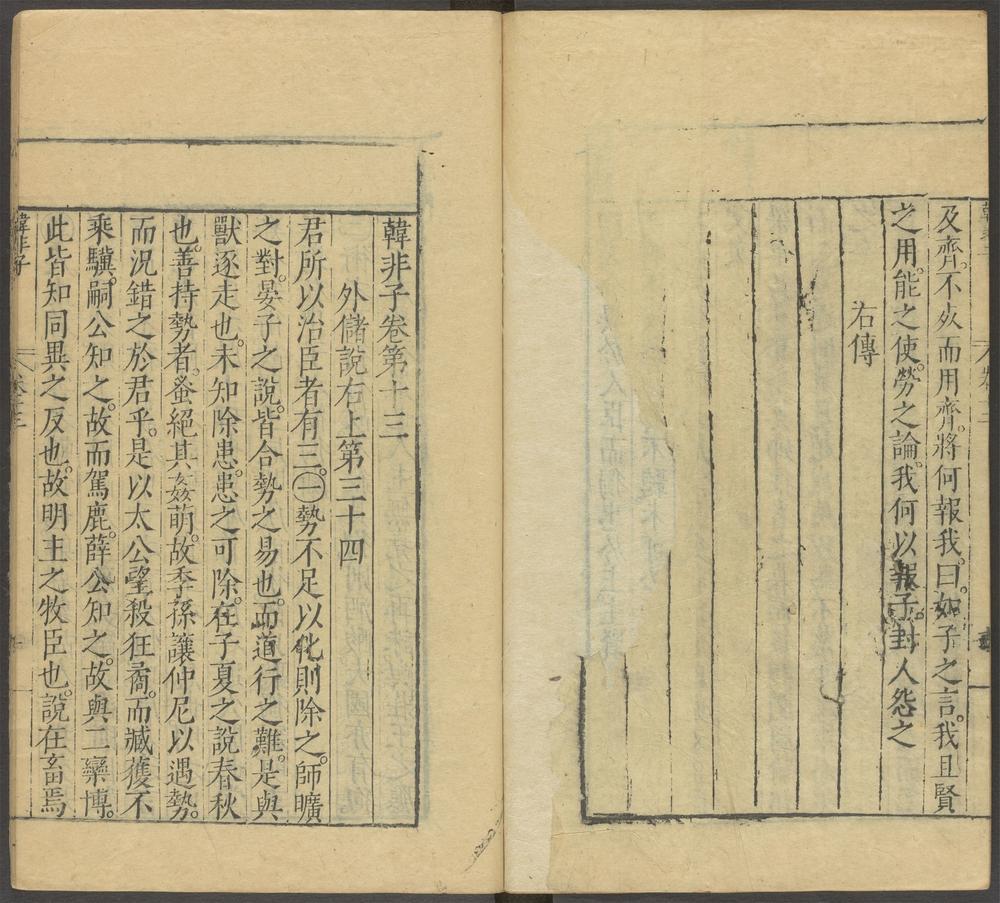 及齊。不死而用齊。將何報我。曰。如子之言。我且賢
之用。能之使。勞之論。我何以報子。封人怨之
右傳
韓非子卷第十三
外儲說右上第三十四
君所以治臣者有三。㊀勢不足以化則除之。師曠
之對。晏子之說。皆合勢之易也。而道行之難。是與
獸逐走也。未知除患。患之可除。在子夏之說春秋
也。善持勢者。蚤絕其姦萌。故季孫讓仲尼以遇勢。
而況錯之於君乎。是以太公望殺狂矞。而臧獲不
乘驥。嗣公知之。故而駕鹿。薛公知之。故與二欒博。
此皆知同異之反也。故明主之牧臣也。說在畜焉
韓非子
卷十三